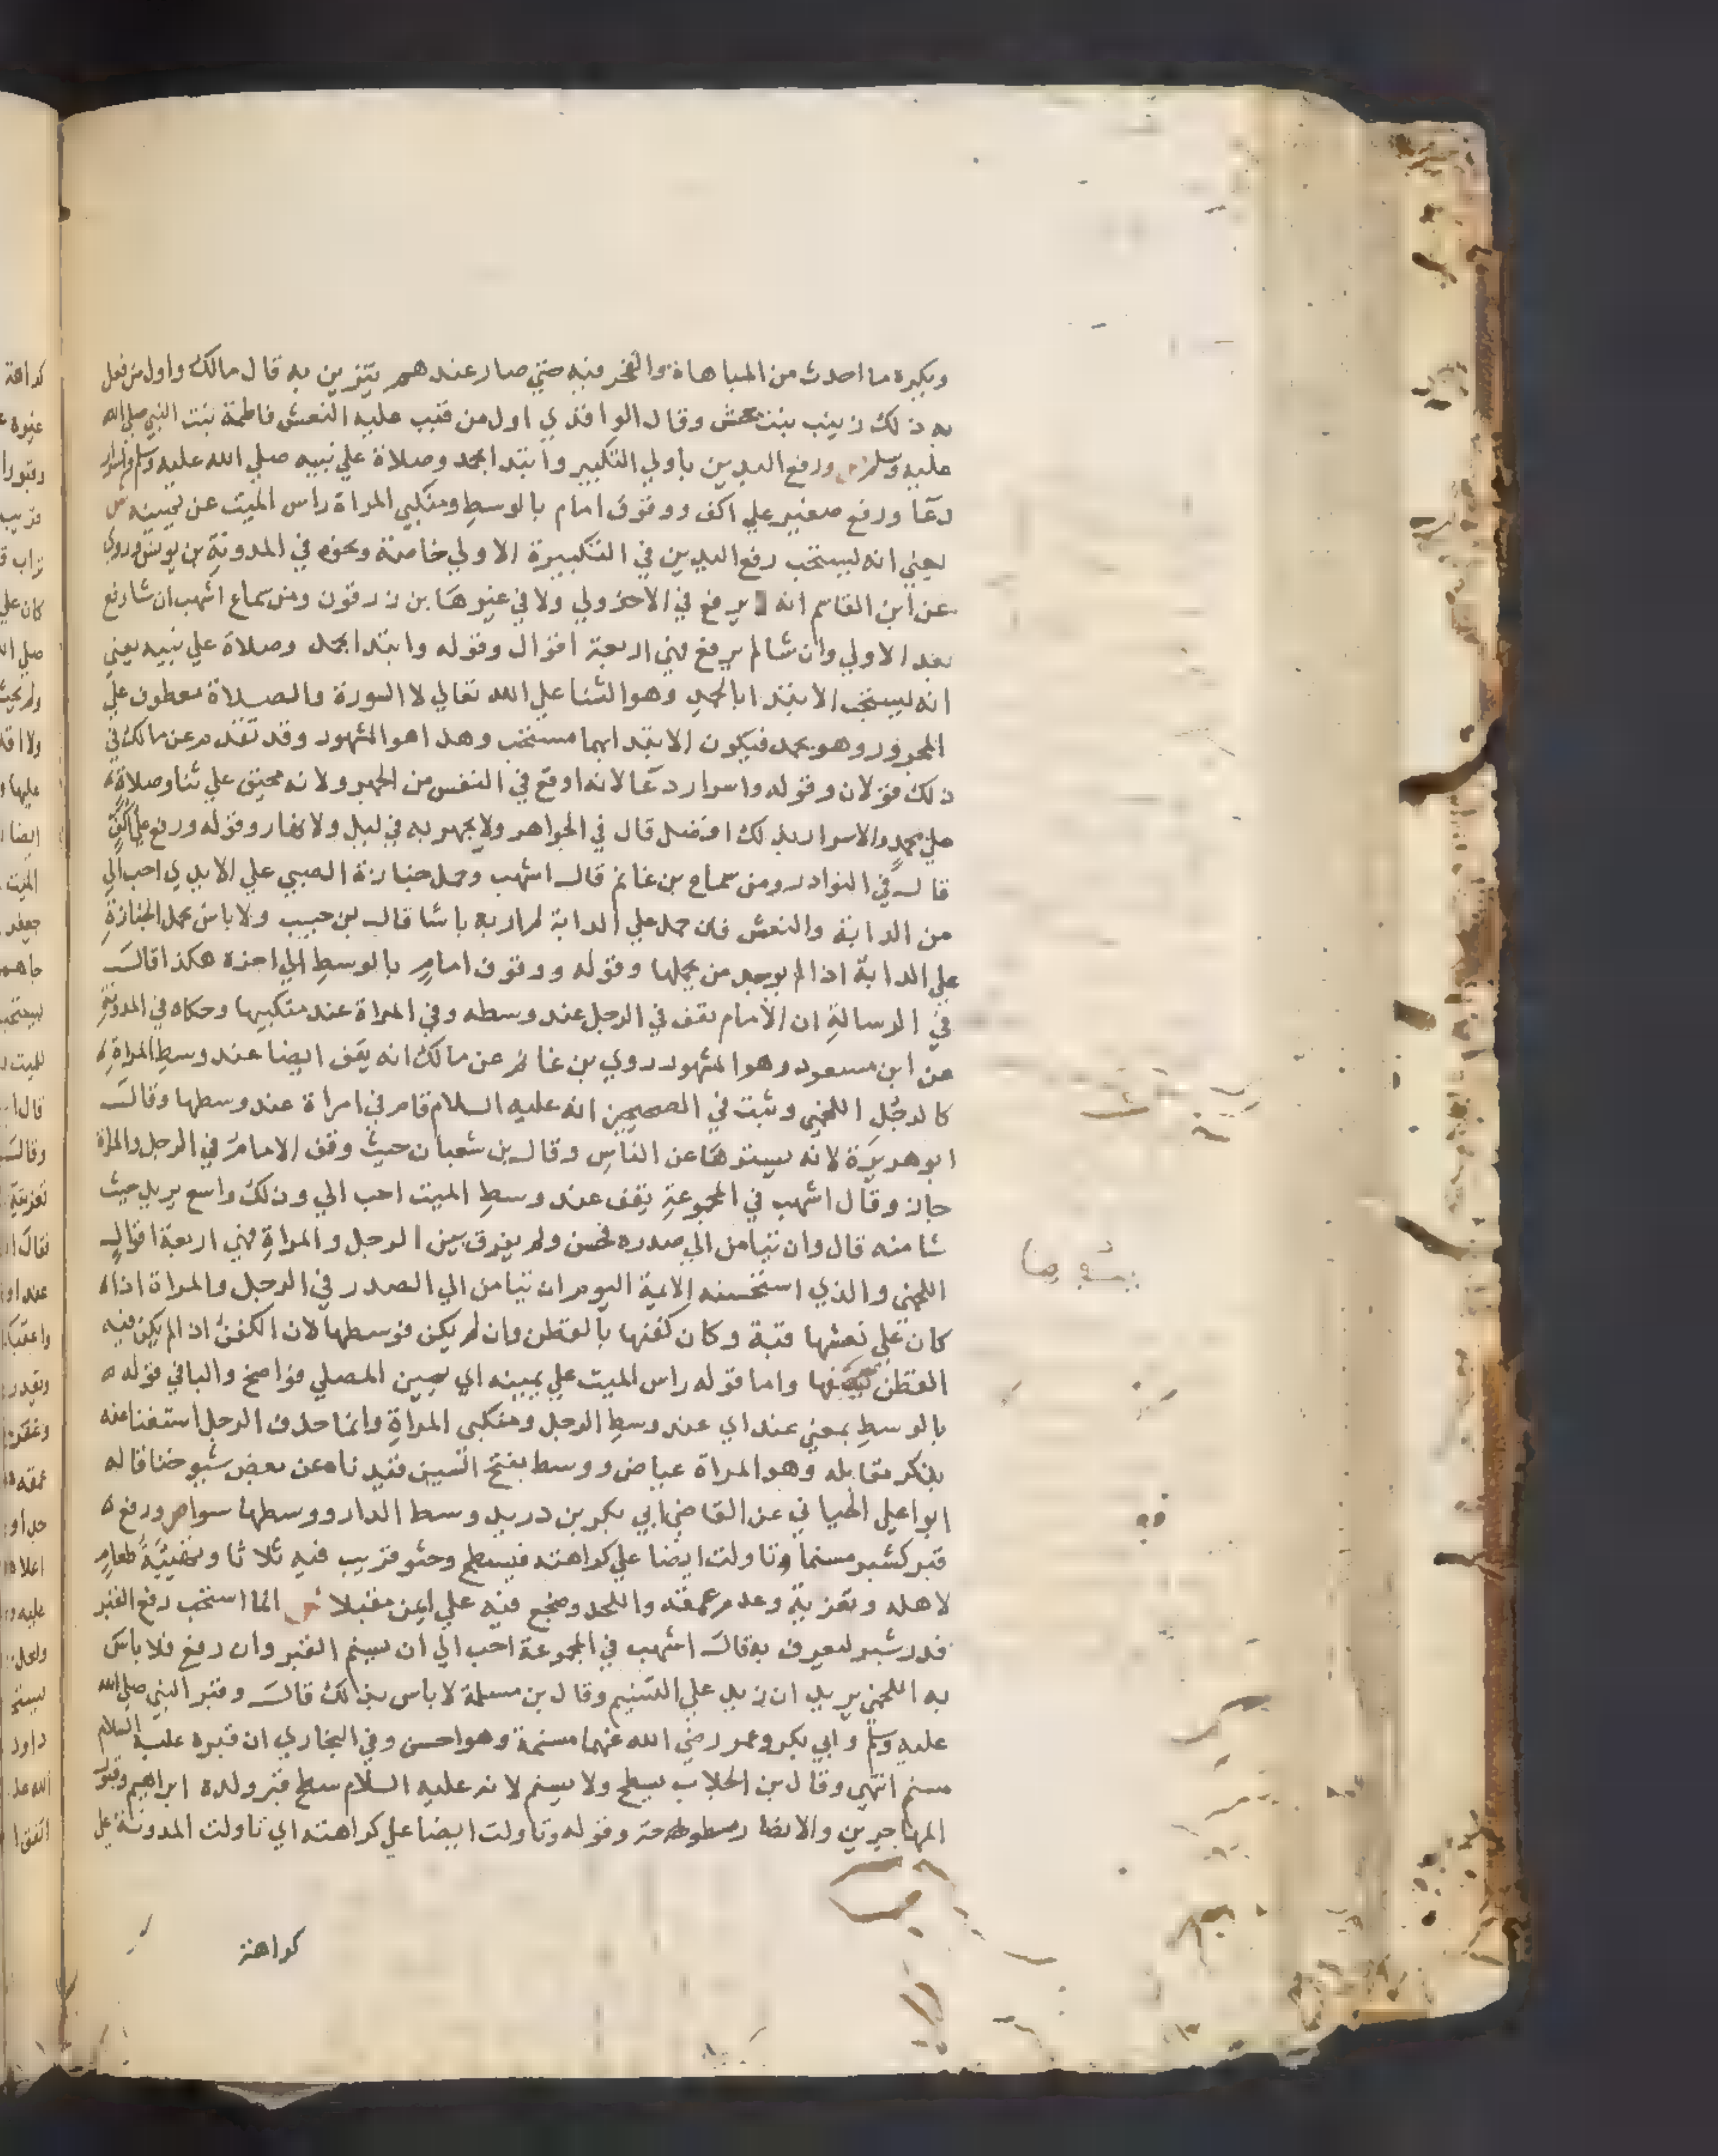 ويكره ما احدث من المباهاة والفخر فيه حتي صار عندهم يتزين به قال مالك واول من فعل
به ذلك زينب بنت جحش وقال الواقدي اول من قبب عليه النعش فاطمة بنت النبي صلي الله
عليه وسلم ص ورفع اليدين باولي التكبير وابتدا بحمد وصلاة علي نبيه صلي الله عليه وسلم واسرار
دعا ورفع صغير علي اكف ووقوف امام بالوسط ومنكبي المراة راس الميت عن يمينه ش
يعني انه يستحب رفع اليدين في التكبيرة الاولي خاصة ونحوه في المدونة بن يونس وروي
عن ابن القاسم انه لا يرفع في الاولي ولا في غيرها بن زرقون ومن سماع اشهب ان شا رفع
بعد الاولي وان شا لم يرفع فهي اربعة اقوال وقوله وابتدا بحمد وصلاة علي نبيه يعني
انه يستحب الابتدا بالحمد وهو الثنا علي الله تعالي لا السورة والصلاة معطوف علي
المجرور وهو بحمد فيكون الابتدا بهما مستحب وهذا هو المشهور وقد تقدم عن مالك في
ذلك قولان وقوله واسرار دعا لانه اوقع في النفس من الجهر ولانه محتو علي ثنا وصلاة
علي محمد والاسرار بذلك افضل قال في الجواهر ولا يجهر به في ليل ولا نهار وقوله ورفع علي اكف
قال في النوادر ومن سماع بن غانم قال اشهب وحمل جنازة الصبي علي الايدي احب الي
من الدابة والنعش فان حمل علي الدابة لم ار به باسا قال بن حبيب ولا باس بحمل الجنازة
علي الدابة اذا لم يوجد من يحملها وقوله ووقوف امام بالوسط الي اخره هكذا قال
في الرسالة ان الامام يقف في الرجل عند وسطه وفي المراة عند منكبيها وحكاه في المدونة
عن ابن مسعود وهو المشهور روي بن غانم عن مالك انه يقف ايضا عند وسط المراة
كالرجل اللخمي وثبت في الصحيحين انه عليه السلام قام في امراة عند وسطها وقال
ابو هريرة لانه يسترها عن الناس وقال بن شعبان حيث وقف الامام في الرجل والمراة
جاز وقال اشهب في المجموعة يقف عند وسط الميت احب الي وذلك واسع يريد حيث
شا منه قال وان تيامن الي صدره فحسن ولم يفرق بين الرجل والمراة فهي اربعة اقوال
اللخمي والذي استحسنه الايمة اليوم ان تيامن الي الصدر في الرجل والمراة اذا
كان علي نعشها قبة وكان كفنها بالقطن وان لم يكن فوسطها لان الكفن اذا لم يكن فيه
القطن يصفها واما قوله راس الميت علي يمينه اي يمين المصلي فواضح والبا في قوله
بالوسط بمعني عند اي عند وسط الرجل ومنكبي المراة وانما حذف الرجل استغنا عنه
بذكر مقابله وهو المراة عياض ووسط بفتح السين قيدناه عن بعض شيوخنا قاله
ابو اعلي الجياني عن القاضي ابي بكر بن دريد وسط الدار ووسطها سوا ص ورفع
قبر كشبر مسنما وتاولت ايضا علي كراهته فيسطح وحثو قريب فيه ثلاثا وتهيئة طعام
لاهله وتعزية وعدم عمقه واللحد وضجع فيه علي ايمن مقبلا ش انما استحب رفع القبر
قدر شبر ليعرف به قال اشهب في المجموعة احب الي ان يسنم القبر وان رفع فلا باس
به اللخمي يريد ان زيد علي التسنيم وقال بن مسلمة لا باس بذلك قال وقبر النبي صلي الله
عليه وسلم وابي بكر وعمر رضي الله عنهما مسنمة وهو احسن وفي البخاري ان قبره عليه السلام
مسنم انتهي وقال بن الجلاب يسطح ولا يسنم لانه عليه السلام سطح قبر ولده ابراهيم وقبور
المهاجرين والانصار مسطوحة وقوله وتاولت ايضا علي كراهته اي تاولت المدونة علي
كراهته